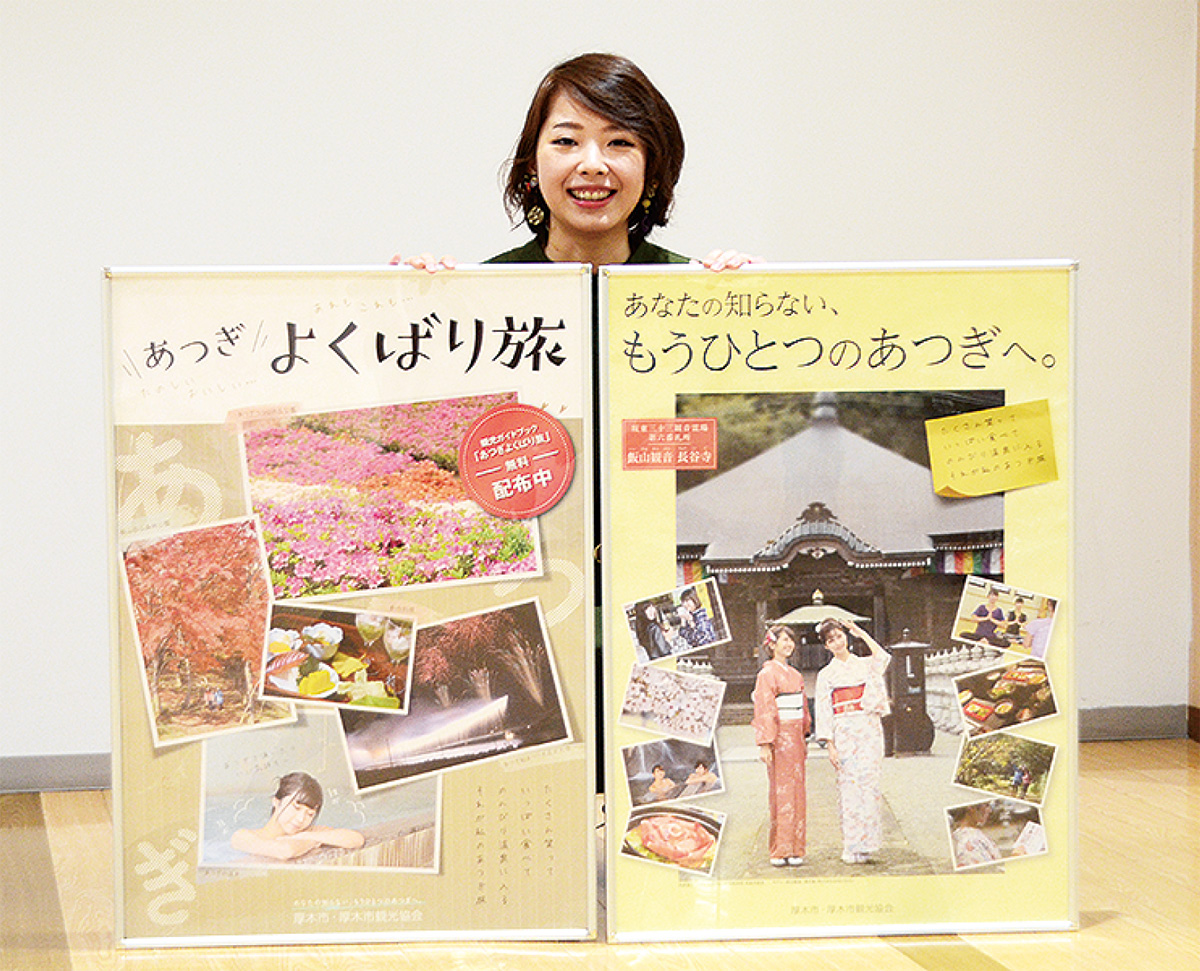 あれも これも…
あつぎ
よくばり旅
たのしい
おいしい…
観光ガイドブック
「あつぎよくばり旅」
無料
配布中
あ
つ
ぎ
たくさん笑って
いっぱい食べて
のんびり温泉に入る
それが私のあつぎ旅
あなたの知らない、もうひとつのあつぎへ。
厚木市・厚木市観光協会
あなたの知らない、
もうひとつのあつぎへ。
坂東三十三観音霊場
第六番札所
飯山観音 長谷寺
たくさん笑って
いっぱい食べて
のんびり温泉に入る
それが私のあつぎ旅
厚木市・厚木市観光協会